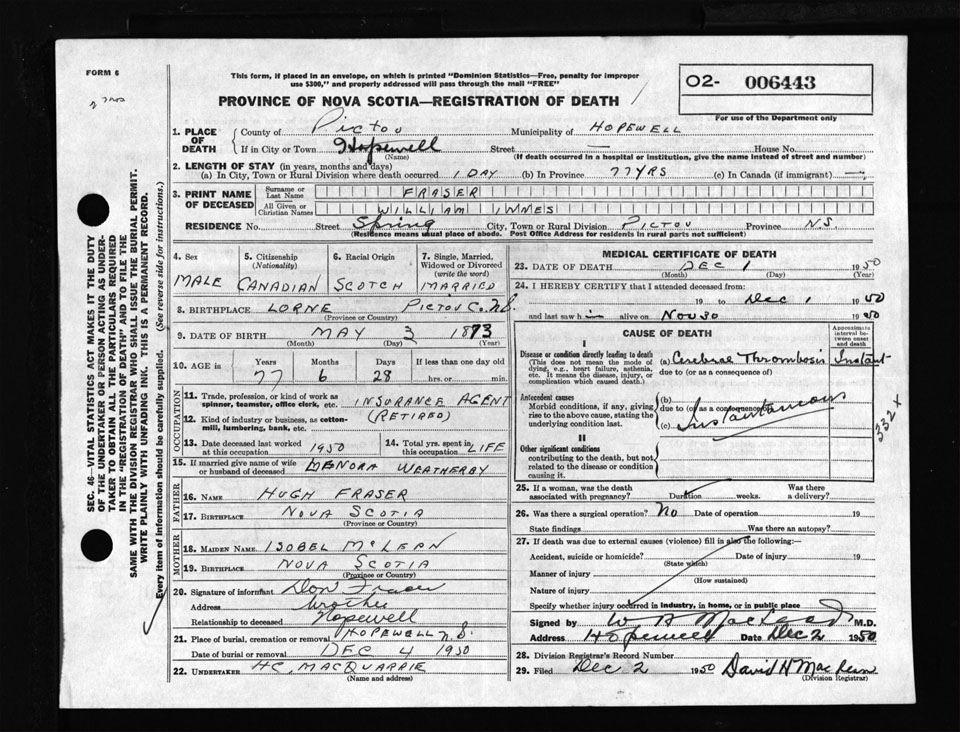 FORM 6
This form, if placed in an envelope, on which is printed "Dominion Statistics—Free, penalty for improper
use $300," and properly addressed will pass through the mail "FREE"
PROVINCE OF NOVA SCOTIA—REGISTRATION OF DEATH
O2- 006443
For use of the Department only
SEC. 46—VITAL STATISTICS ACT MAKES IT THE DUTY
OF THE UNDERTAKER OR PERSON ACTING AS UNDER-
TAKER TO OBTAIN ALL THE PARTICULARS REQUIRED
IN THE "REGISTRATION OF DEATH" AND TO FILE THE
SAME WITH THE DIVISION REGISTRAR WHO SHALL ISSUE THE BURIAL PERMIT.
WRITE PLAINLY WITH UNFADING INK. THIS IS A PERMANENT RECORD.
Every item of information should be carefully supplied. (See reverse side for instructions.)
1. PLACE OF DEATH County of Pictou Municipality of HOPEWELL
If in City or Town Hopewell Street — House No.
(Name) (If death occurred in a hospital or institution, give the name instead of street and number)
2. LENGTH OF STAY (in years, months and days)
(a) In City, Town or Rural Division where death occurred 1 DAY (b) In Province 77 YRS (c) In Canada (if immigrant) —
3. PRINT NAME OF DECEASED Surname or Last Name FRASER
All Given or Christian Names WILLIAM INNES
RESIDENCE No. Street Spring City, Town or Rural Division PICTOU Province N.S.
(Residence means usual place of abode. Post Office Address for residents in rural parts not sufficient)
4. Sex 5. Citizenship (Nationality) 6. Racial Origin 7. Single, Married, Widowed or Divorced (write the word)
MALE CANADIAN SCOTCH MARRIED
8. BIRTHPLACE LORNE PICTOU Co. N.S.
(Province or Country)
9. DATE OF BIRTH MAY 3 1873
(Month) (Day) (Year)
10. AGE in Years Months Days If less than one day old
77 6 28 hrs. or min.
OCCUPATION
11. Trade, profession, or kind of work as spinner, teamster, office clerk, etc. INSURANCE AGENT
12. Kind of industry or business, as cotton-mill, lumbering, bank, etc. (RETIRED)
13. Date deceased last worked at this occupation 1950 14. Total yrs. spent in this occupation LIFE
15. If married give name of wife or husband of deceased MENORA WEATHERBY
FATHER
16. NAME HUGH FRASER
17. BIRTHPLACE NOVA SCOTIA
(Province or Country)
MOTHER
18. MAIDEN NAME ISOBEL McLEAN
19. BIRTHPLACE NOVA SCOTIA
(Province or Country)
20. Signature of informant Don Fraser
Address brother
Relationship to deceased Hopewell
21. Place of burial, cremation or removal HOPEWELL N.S.
Date of burial or removal DEC 4 1950
22. UNDERTAKER H.C. MACQUARRIE
MEDICAL CERTIFICATE OF DEATH
23. DATE OF DEATH DEC 1 1950
(Month) (Day) (Year)
24. I HEREBY CERTIFY that I attended deceased from:
19 to Dec 1 1950
and last saw him alive on Nov 30 1950
CAUSE OF DEATH
Approximate interval between onset and death
I
Disease or condition directly leading to death (a) Cerebral Thrombosis Instant
(This does not mean the mode of dying, e.g., heart failure, asthenia, etc. It means the disease, injury, or complication which caused death.) due to (or as a consequence of)
Antecedent causes
Morbid conditions, if any, giving rise to the above cause, stating the underlying condition last.
(b)
due to (or as a consequence of)
(c) Instantaneous
332 x
II
Other significant conditions
contributing to the death, but not related to the disease or condition causing it.
25. If a woman, was the death associated with pregnancy? Duration weeks. Was there a delivery?
26. Was there a surgical operation? No Date of operation 19
State findings Was there an autopsy?
27. If death was due to external causes (violence) fill in also the following:—
Accident, suicide or homicide? Date of injury 19
(State which)
Manner of injury
(How sustained)
Nature of injury
Specify whether injury occurred in industry, in home, or in public place
Signed by W A MacLeod M.D.
Address Hopewell Date Dec 2 1950
28. Division Registrar's Record Number
29. Filed Dec 2 1950 David H MacLean
(Division Registrar)